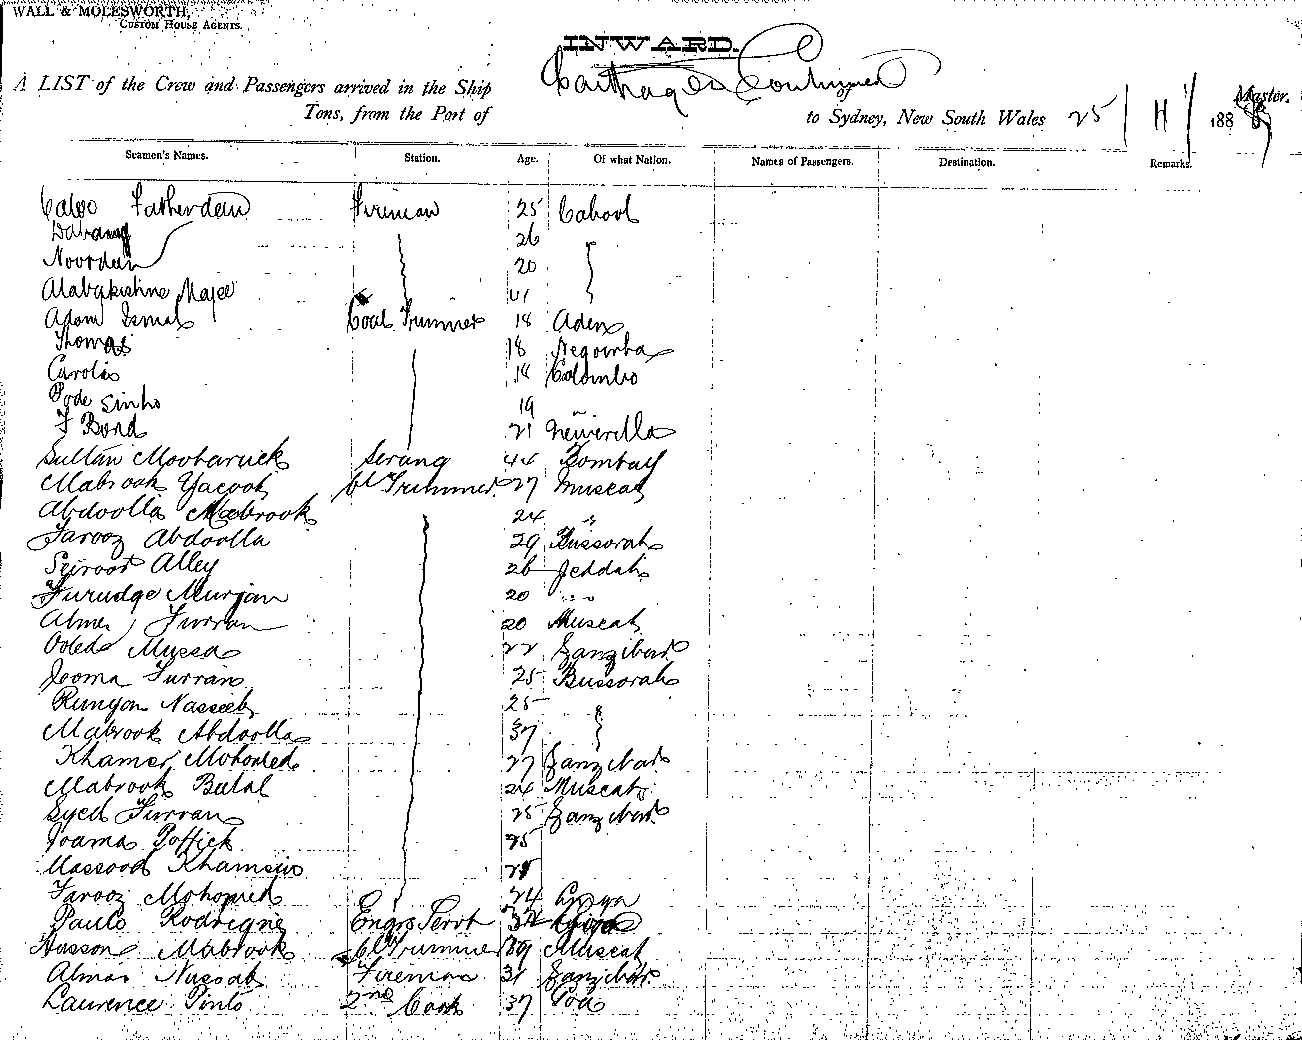 WALL & MOLESWORTH,
CUSTOM HOUSE AGENTS.
INWARD.
A LIST of the Crew and Passengers arrived in the Ship Carthage Continued of Master.
Tons, from the Port of to Sydney, New South Wales 25 / 11 / 188
Seamen's Names. Station. Age. Of what Nation. Names of Passengers. Destination. Remarks.
Fireman 25 Cabool
26
Noordeen 20
41
Adam Ismal Coal Trimmer 18 Aden
Thomas 18 Negomba
Carolis 18 Colombo
Pode Sinho 19 "
F Bond 21
Sultan Moobaruck Serang 44 Bombay
Mabrook Yacoob Cl Trimmer 27 Muscat
Abdoolla Mabrook 24 "
Farooz Abdoolla 29 Bussorah
Alley 26 Jeddah
Furudge Murjan 20 " "
Almas Furran 20 Muscat
Mussa 22 Zanzibar
Jooma Furran 25 Bussorah
Nasseeb 25
Mabrook Abdoolla 37
Khamer Mohomed 27 Zanzibar
Mabrook Belal 24 Muscat
Syed Furran 25 Zanzibar
Joama 25
Massood Khamsin 25
Farooz Mohomed 24
Paulo Rodrigue Engrs Servt Goa
Hasson Mabrook Cl Trimmer 39 Muscat
Almas Nussab Fireman 31 Zanzibar
Laurence Pinto 2nd Cook 37 Goa